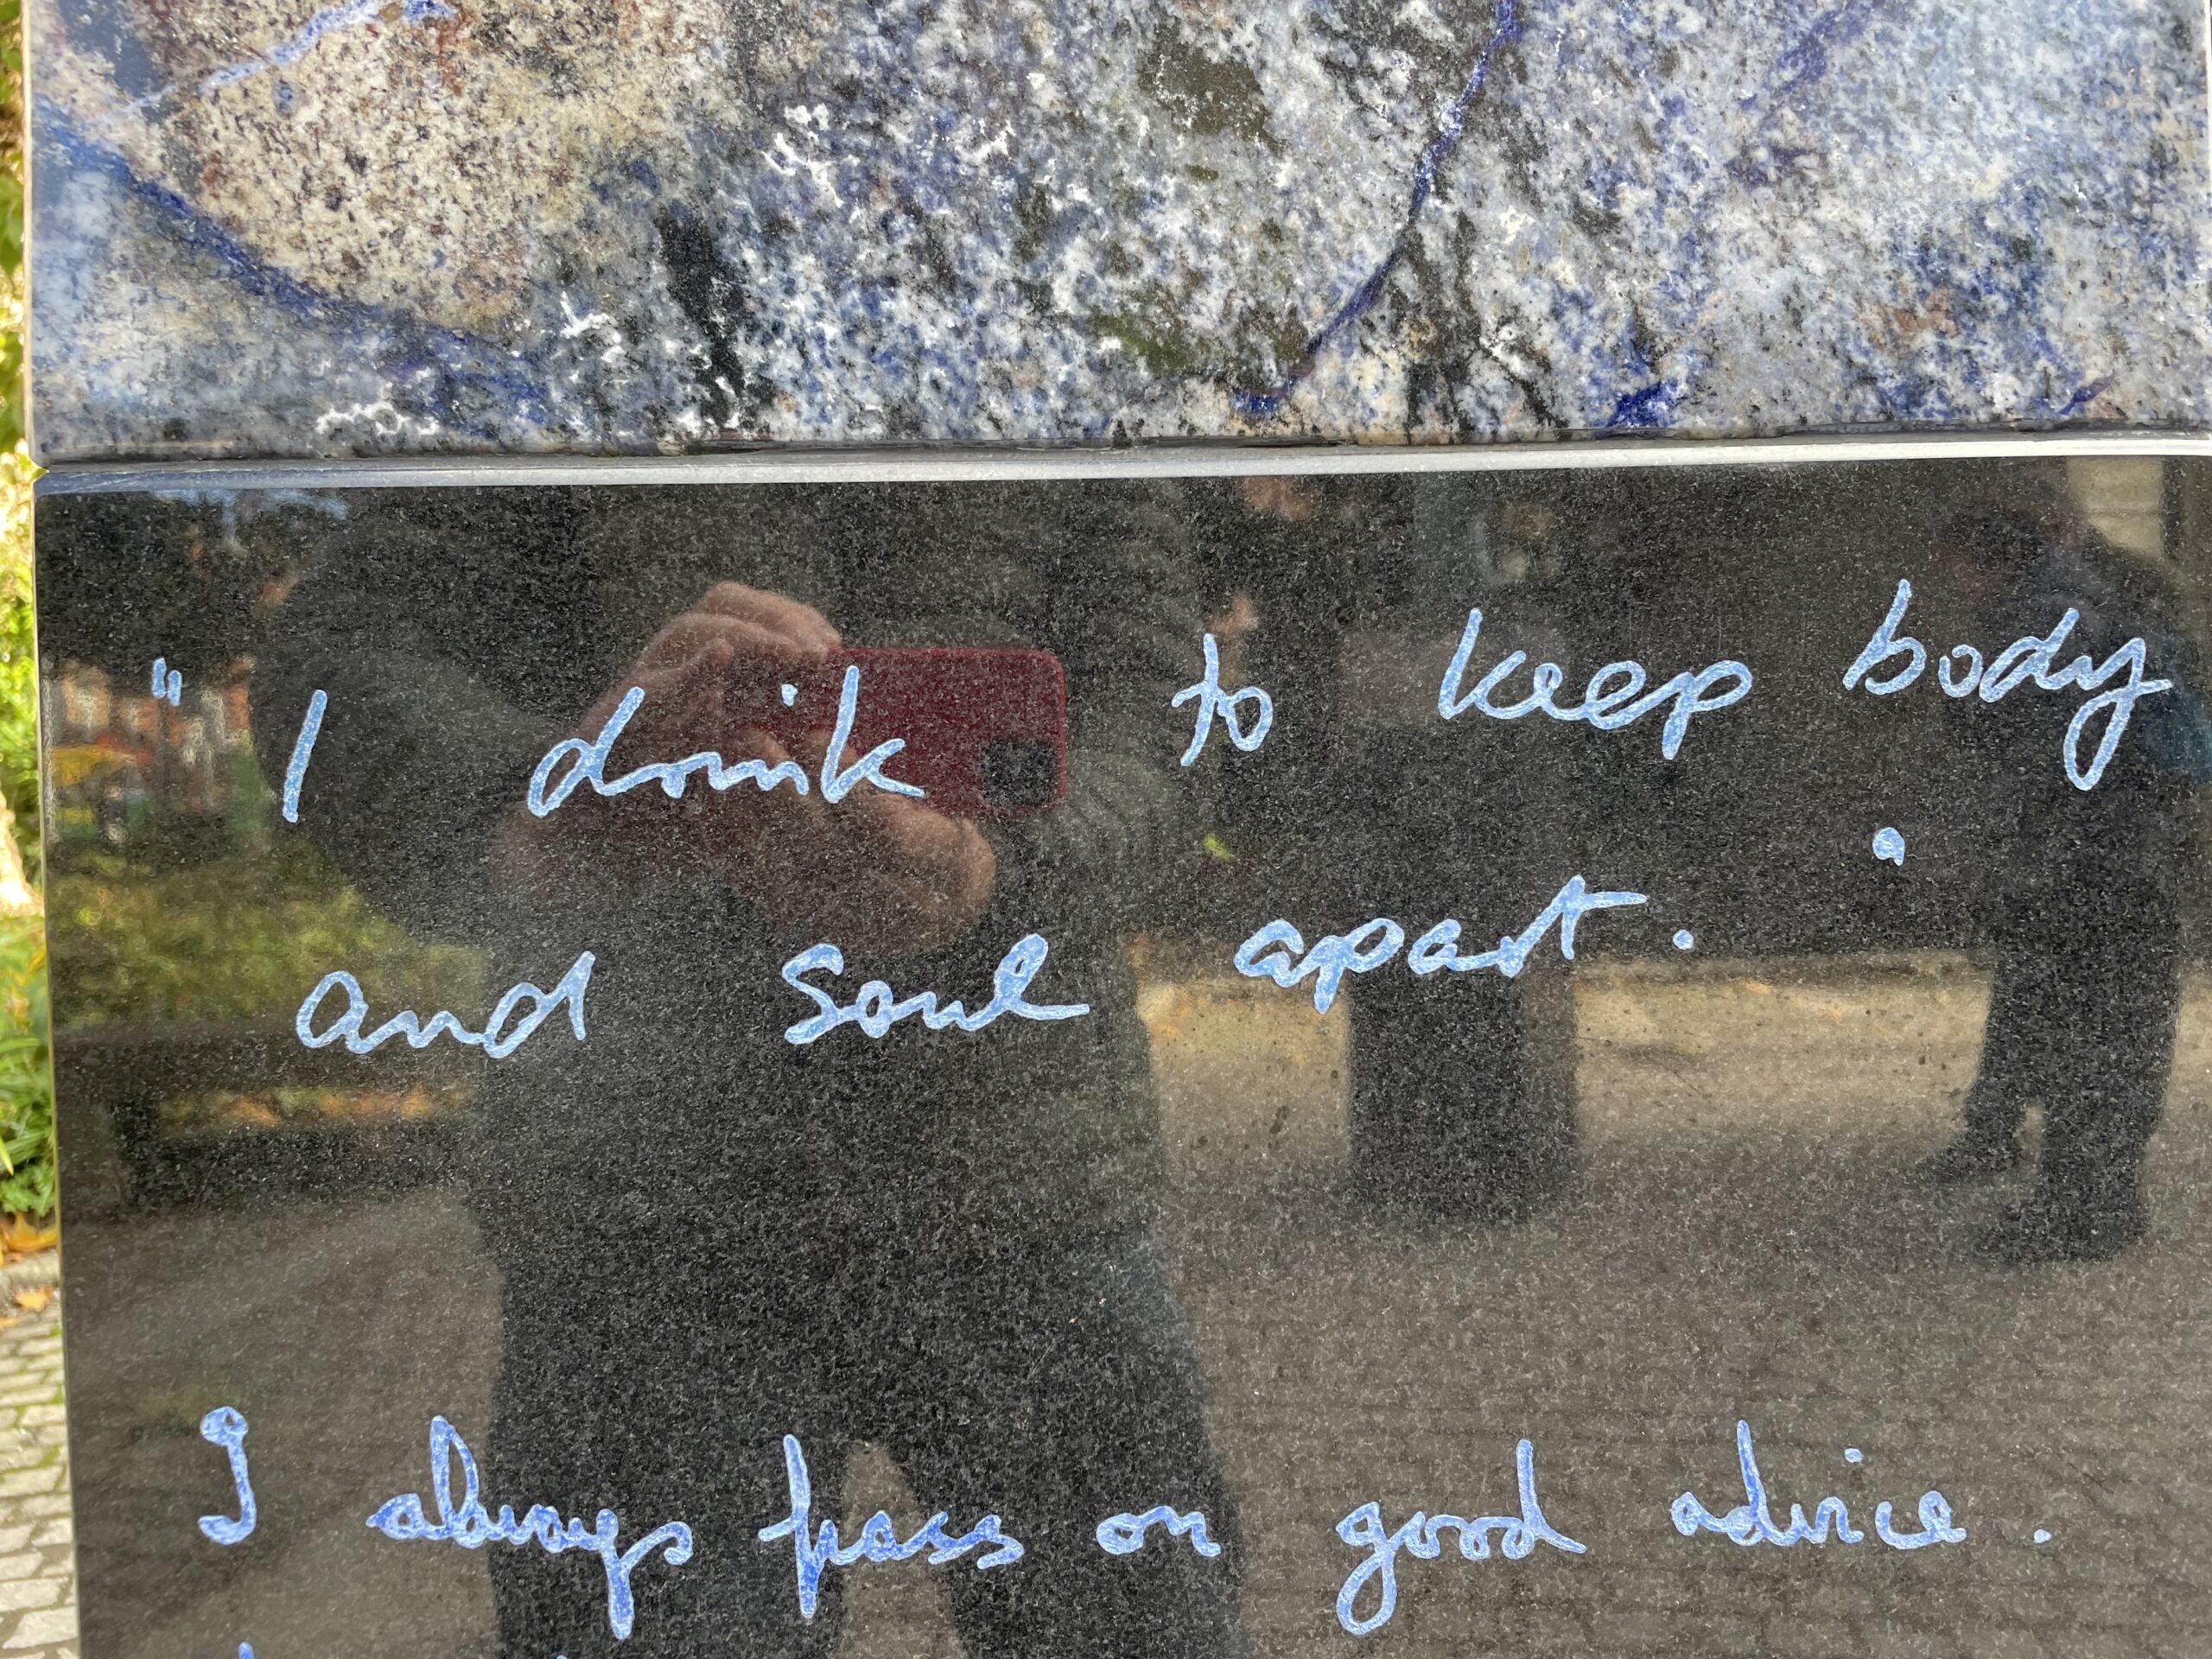 " I drink to keep body
and soul apart.
I always pass on good advice.